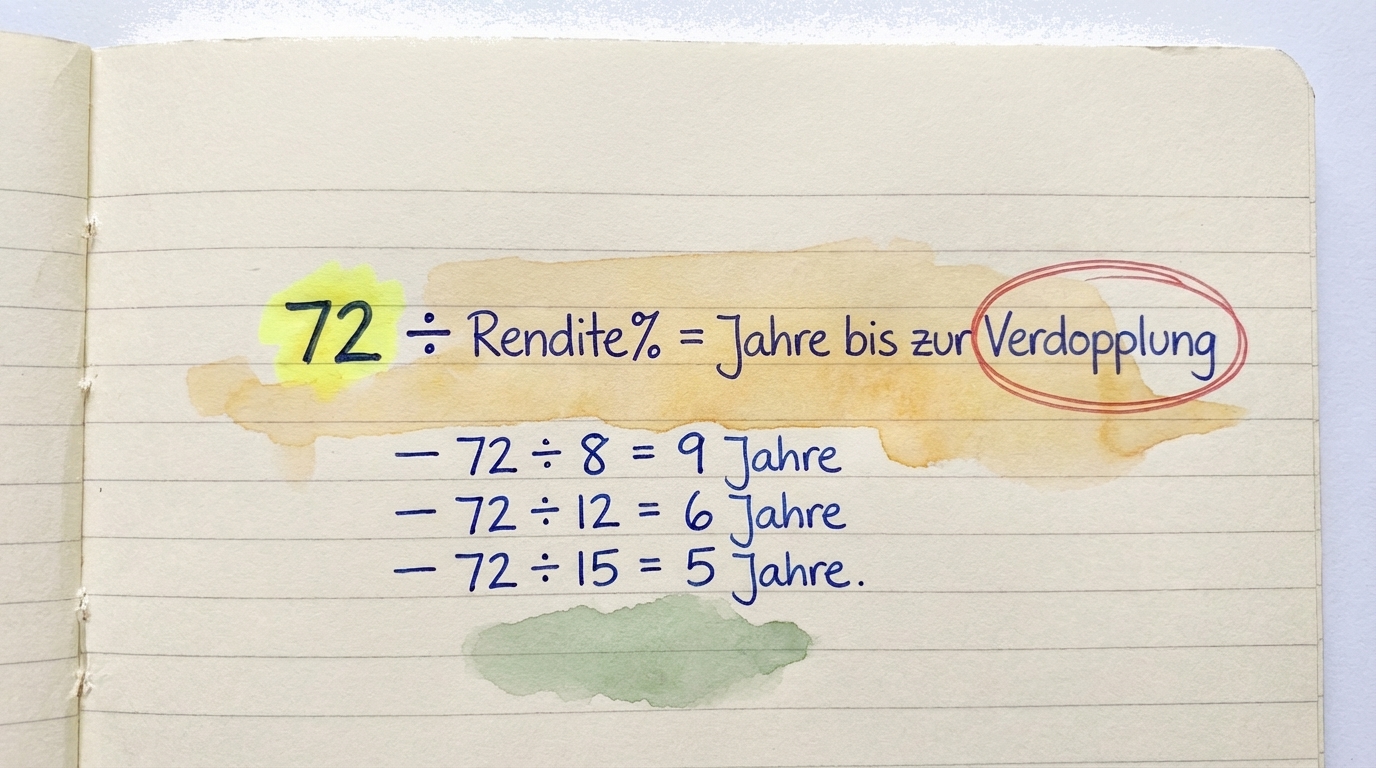 72 ÷ Rendite% = Jahre bis zur Verdopplung
— 72 ÷ 8 = 9 Jahre
— 72 ÷ 12 = 6 Jahre
— 72 ÷ 15 = 5 Jahre.